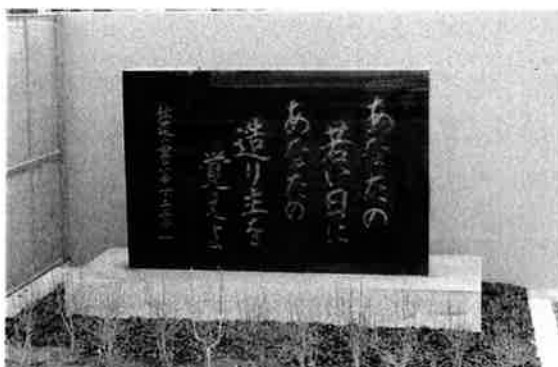 あなたの
若い日に
あなたの
造り主を
覚えよ